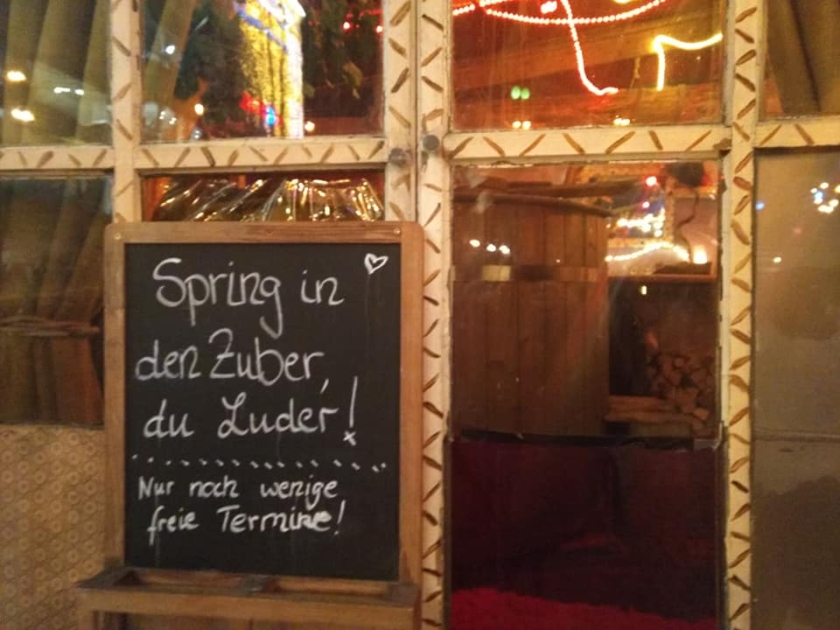 Spring in
den Zuber,
du Luder!
Nur noch wenige
freie Termine!